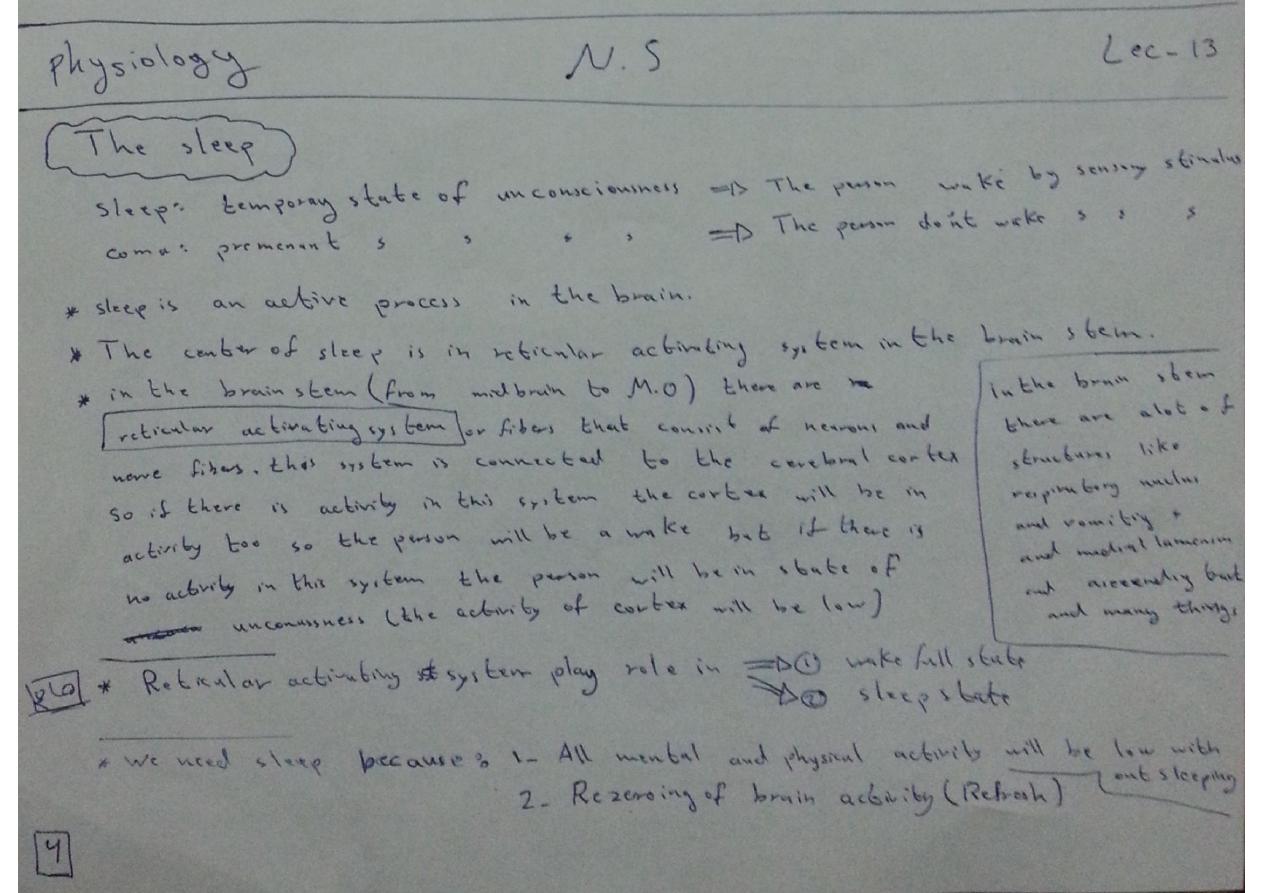 Physiology N.S Lec-13
The sleep
sleep: temporay state of unconsciousness => The person wake by sensory stimulus
coma: premenant s s s s => The person don't wake s s s
* sleep is an active process in the brain.
* The center of sleep is in reticular activating system in the brain stem.
* in the brain stem (from midbrain to M.O) there are
reticular activating system or fibers that consist of neurons and
nerve fibers. this system is connected to the cerebral cortex
so if there is activity in this system the cortex will be in
activity too so the person will be a wake but if there is
no activity in this system the person will be in state of
unconussness (the activity of cortex will be low)
in the brain stem
there are alot of
structures like
respiratory nuclus
and vomitig +
and medial lameniss
and ascending tract
and many things
* Reticular activating system play role in => ① wake full state
=> ② sleep state
* we need sleep because: 1- All mental and physical activity will be low with
out sleeping
2- Rezeroing of brain activity (Refresh)
4